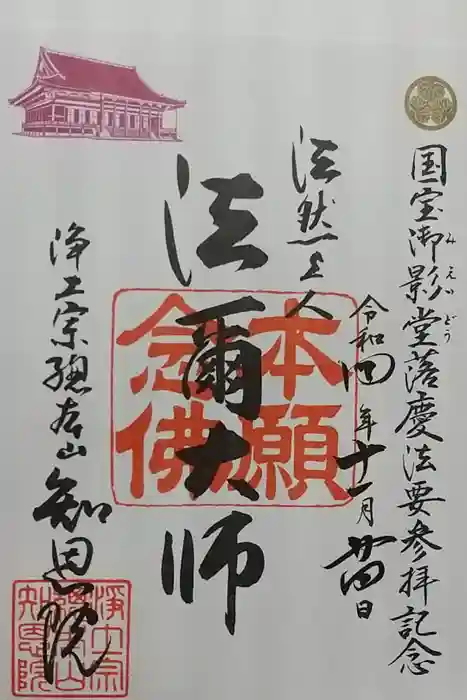 国宝御影堂落慶法要参拝記念
みえいどう
令和四年十一月廿四日
法然上人
法爾大師
本願念佛
浄土宗總本山
知恩院
浄土宗總本山知恩院